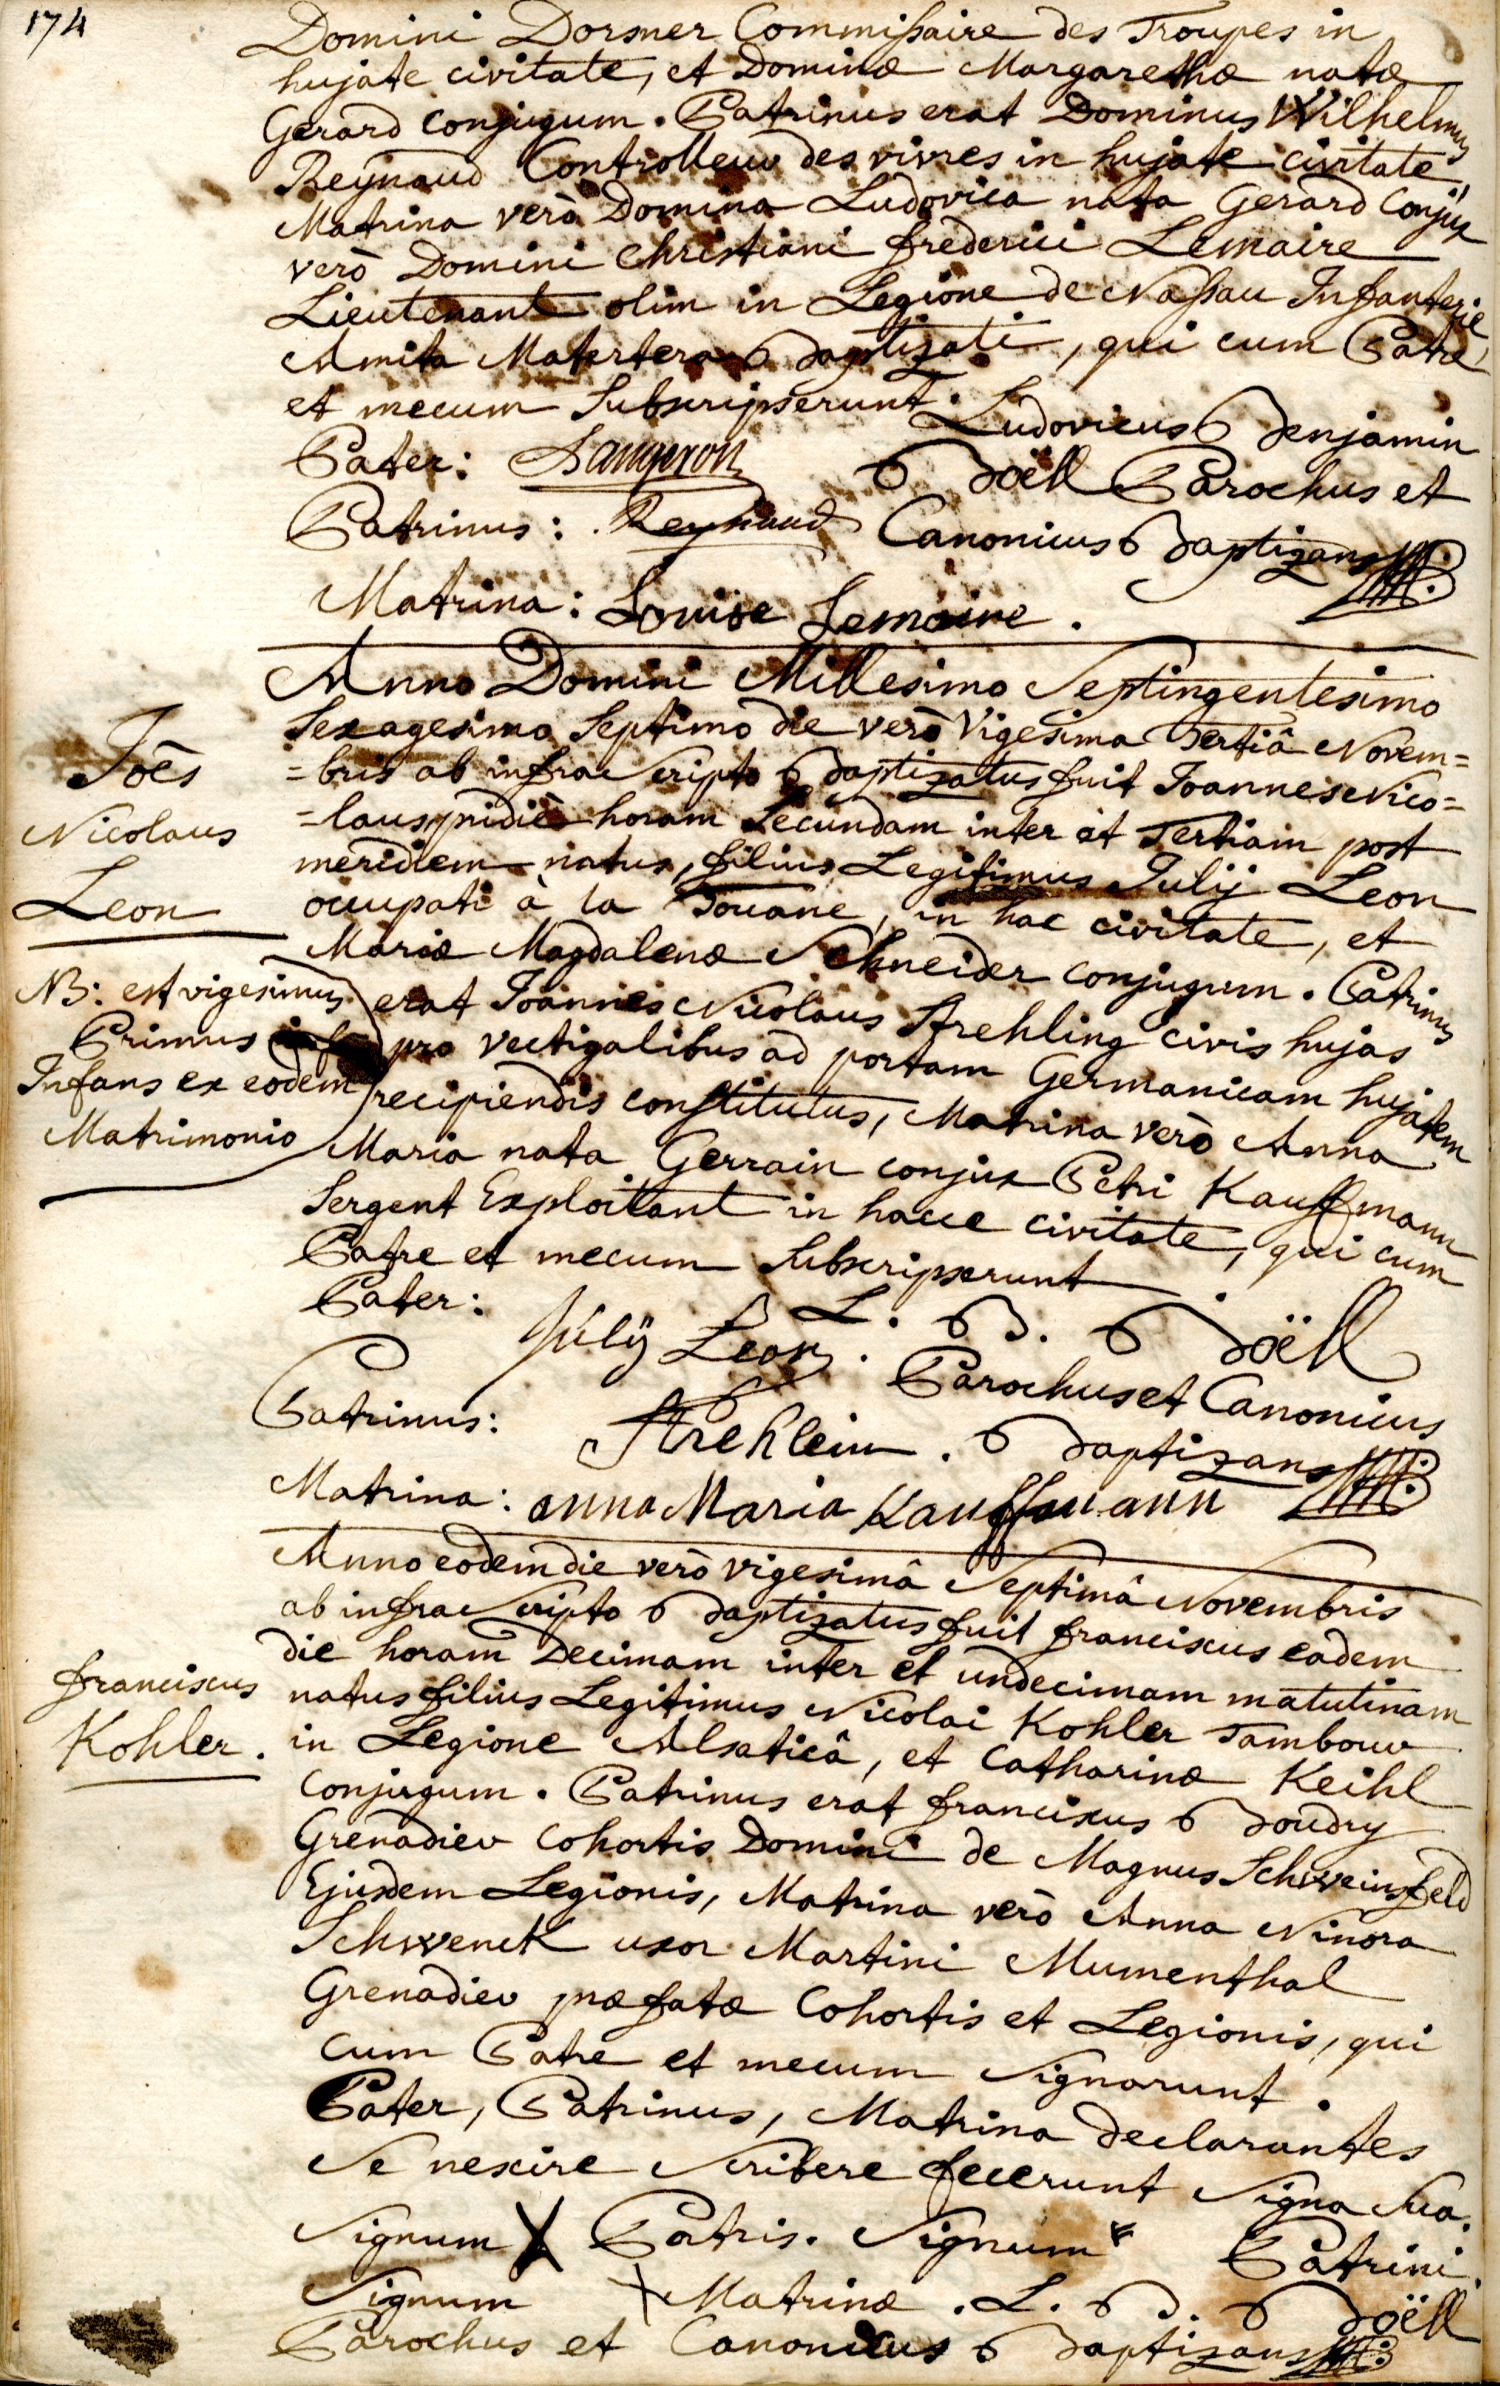 174
Domini Dorsner Commissaire des Troupes in
hujate civitate, et Dominæ Margarethæ natæ
Gerard conjugum. Patrinus erat Dominus Wilhelmus
Reynaud Controlleur des vivres in hujate civitate,
Matrina verò Domina Ludovica nata Gerard Conjux
verò Domini Christiani frederici Lemaire
Lieutenant olim in Legione de Nassau Infanterie,
Amita Matertera Baptizati, qui cum Patre
et mecum Subscripserunt.
Ludovicus Benjamin
Pater:
Böell Parochus et
Patrinus: Reynaud
Canonicus Baptizans
Matrina: Louise Lemaire.
Anno Domini Millesimo Septingentesimo
Sexagesimo Septimo die verò Vigesima Tertiâ Novem=
=bris ab infra Scripto Baptizatus fuit Joannes Nico=
=laus pridiè horam Secundam inter et Tertiam post
meridiem natus, filius Legitimus Julij Leon
occupati à la Douane, in hac civitate, et
Mariæ Magdalenæ Schneider conjugum. Patrinus
erat Joannes Nicolaus Strehling civis hujas
pro vectigalibus ad portam Germanicam hujatem
recipiendis constitutus, Matrina verò Anna
Maria nata Gerrain conjux Petri Kauffmann
Sergent Exploitant in hacce civitate, qui cum
Patre et mecum Subscripserunt.
Joês
Nicolaus
Leon
NB: est vigesimus
Primus
Infans ex eodem
Matrimonio
Pater: Julÿ Leon.
L. B. Böell
Parochus et Canonicus
Patrinus: Strehlein.
Baptizans
Matrina: anna Maria Kauffmann
Anno eodem die verò vigesimâ Septimâ Novembris
ab infra Scripto Baptizatus fuit franciscus eadem
die horam Decimam inter et undecimam matutinam
natus filius Legitimus Nicolai Kohler Tambour
in Legione Alsaticâ, et Catharinæ Keihl
Conjugum. Patrinus erat franciscus Boudry
Grenadier Cohortis Domini de Magnus Schweinsfeld
Ejusdem Legionis, Matrina verò Anna Ninora
Schwenck uxor Martini Mumenthal
Grenadier præfatæ Cohortis et Legionis, qui
cum Patre et mecum Signarunt.
Pater, Patrinus, Matrina declarantes
Se nescire Scribere fecerunt Signa Sua.
franciscus
Kohler.
Signum X Patris. Signum Patrini.
Signum X Matrinæ. L. B. Böell
Parochus et Canonicus Baptizans